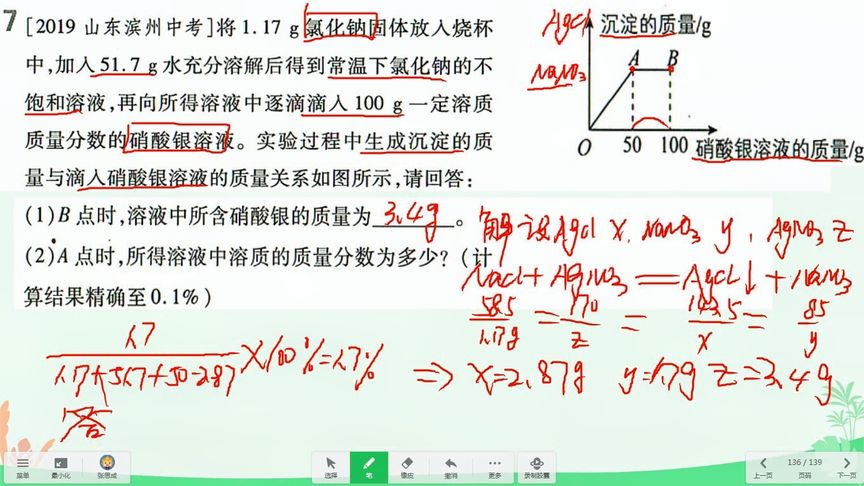 7 [2019 山东滨州中考]将 1.17 g 氯化钠固体放入烧杯
中,加入 51.7 g 水充分溶解后得到常温下氯化钠的不
饱和溶液,再向所得溶液中逐滴滴入 100 g 一定溶质
质量分数的硝酸银溶液。实验过程中生成沉淀的质
量与滴入硝酸银溶液的质量关系如图所示,请回答:
(1)B 点时,溶液中所含硝酸银的质量为 3.4g 。
(2)A 点时,所得溶液中溶质的质量分数为多少?(计
算结果精确至 0.1%)
AgCl 沉淀的质量/g
NaNO₃
A B
O 50 100 硝酸银溶液的质量/g
解 设AgCl X. NaNO₃ y. AgNO₃ Z
NaCl + AgNO₃ = AgCl↓ + NaNO₃
58.5 170 143.5 85
1.17g = z = x = y
⇒ X=2.87g y=1.7g Z=3.4g
1.7
1.17+51.7+50-2.87 ×100%=1.7%
答
菜单 最小化 张思成 选择 笔 橡皮 撤消 更多 录制胶囊 上一页 136 / 139 页码 下一页